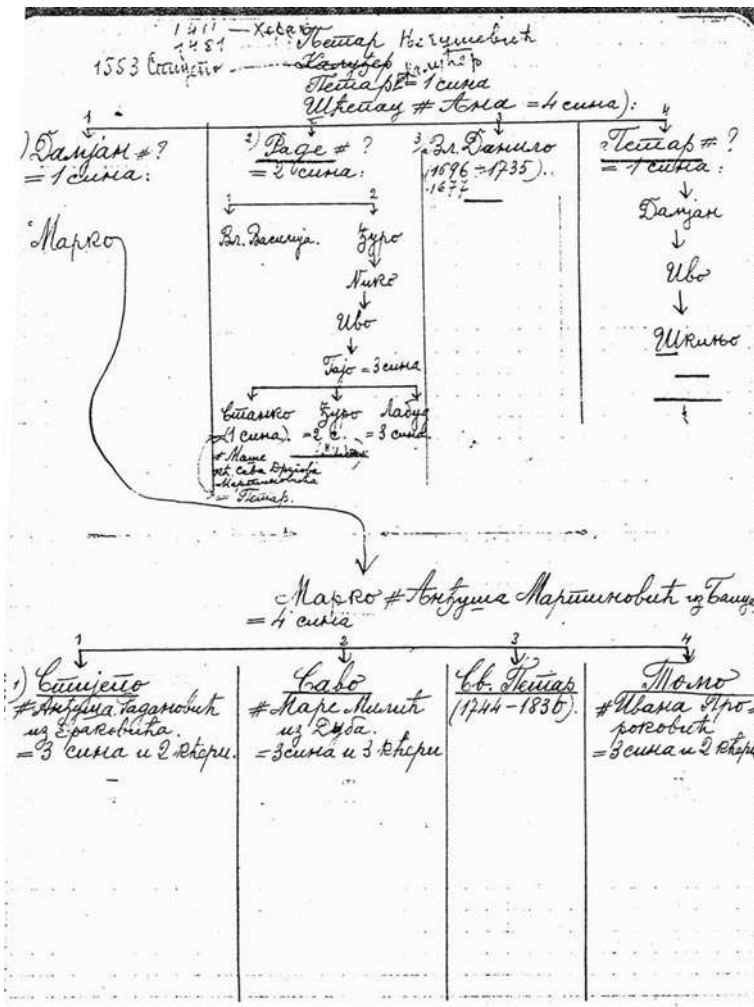 1411 — Херак
1481
Петар Његушевић
1553 Стијепо
Калуђер
Петар = 1 сина
Шћепац # Ана = 4 сина):
1
3
4
1) Дамјан # ?
= 1 сина:
Марко
2) Раде # ?
= 2 сина:
1
2
Вл. Василија.
Ђуро
Нико
Иво
Гајо = 3 сина
Станко
(1 сина).
# Маше
кћ. Сава Друјова
Мартиновића
= Петар.
Ђуро
= 2 с.
Лабуд
= 3 сина.
3) Вл. Данило
(1696 - 1735).
1677
Петар # ?
= 1 сина:
Дамјан
Иво
Шкињо
Марко # Анђуша Мартиновић из Бајца
= 4 сина
1
2
3
4
1) Стијепо
# Анђуша Гадановић
из Ераковића.
= 3 сина и 2 кћери.
Саво
# Маре Милић
из Дуба.
= 3 сина и 3 кћери
Св. Петар
(1744 - 1830).
Томо
# Ивана Про-
роковић
= 3 сина и 2 кћери